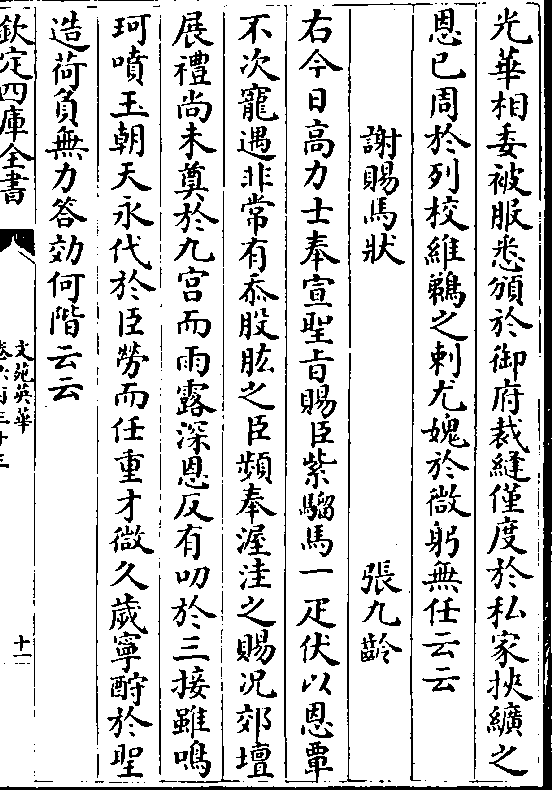 光華相委被服悉頒於御府裁縫僅度於私家挾纊之
恩已周於列校維鵜之刺尤媿於微躬無任云云
謝賜馬狀 張九齡
右今日高力士奉宣聖旨賜臣紫騮馬一疋伏以恩覃
不次寵遇非常有忝股肱之臣頻奉渥洼之賜况郊壇
展禮尚未奠於九宫而雨露深恩反有叨於三接雖鳴
珂噴玉朝天永代於臣勞而任重才微久歲寧酧於聖
造荷負無力答効何階云云
欽定四庫全書
文苑英華
卷六百三十三
十一